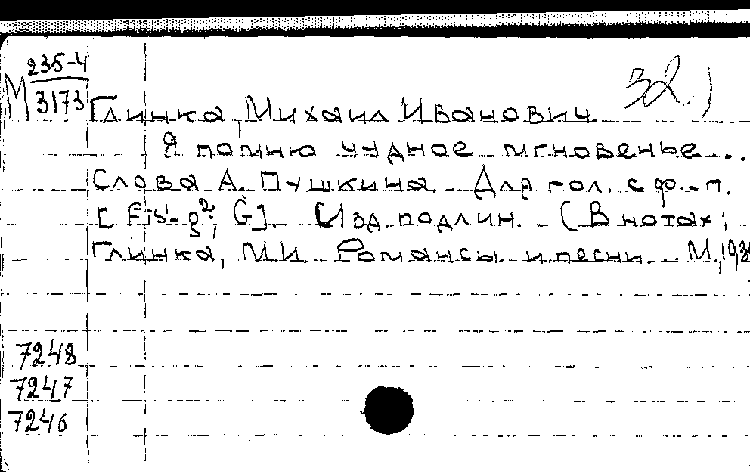 235-4
М 3173
32)
Глинка, Михаил Иванович.
Я помню чудное мгновенье...
Слова А. Пушкина. Для гол. с ф.-п.
[Fis'-g²; G]. [Изд. подлин. (В нотах:
Глинка, М.И. Романсы и песни. М., 193
7248
7247
7246